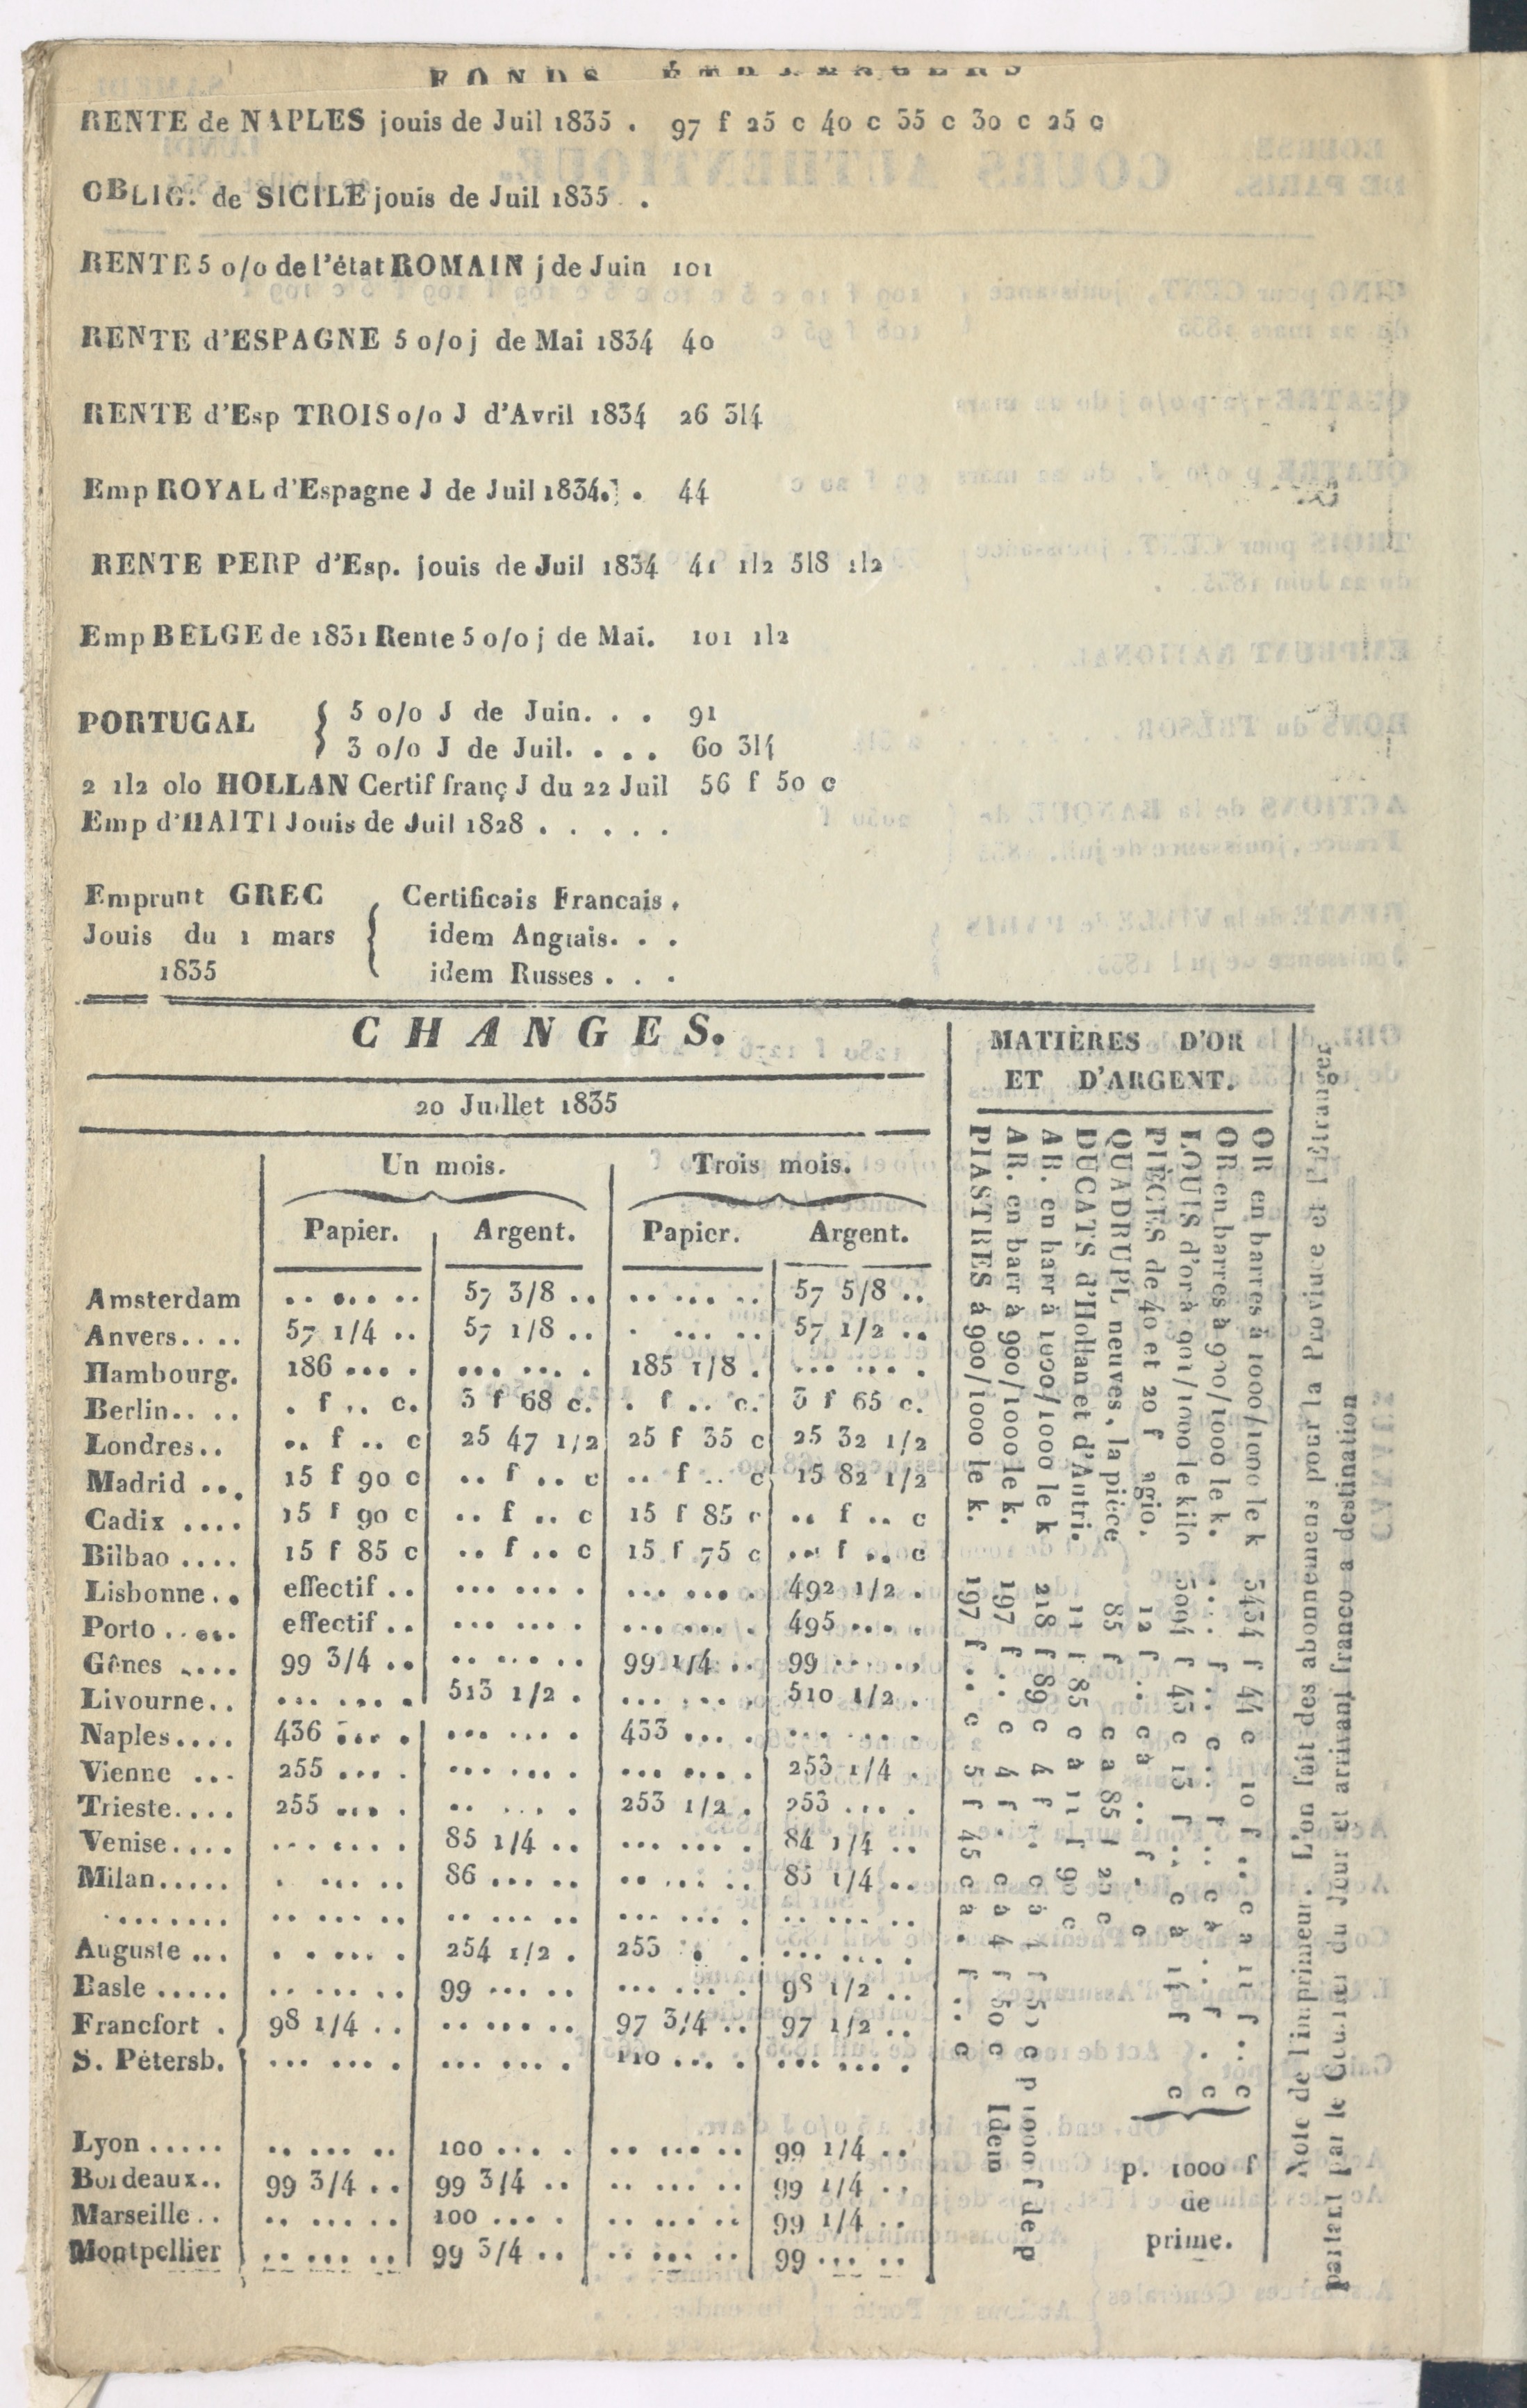 FONDS ÉTRANGERS
RENTE de NAPLES jouis de Juil 1835 . 97 f 25 c 40 c 35 c 30 c 25 c
OBLIG. de SICILE jouis de Juil 1835 .
RENTE 5 o/o de l'état ROMAIN j de Juin 101
RENTE d'ESPAGNE 5 o/o j de Mai 1834 40
RENTE d'Esp TROIS o/o J d'Avril 1834 26 3|4
Emp ROYAL d'Espagne J de Juil 1834. . 44
RENTE PERP d'Esp. jouis de Juil 1834 41 1|2 5|8 1|2
Emp BELGE de 1831 Rente 5 o/o j de Mai. 101 1|2
PORTUGAL { 5 o/o J de Juin. . . 91
3 o/o J de Juil. . . . 60 3|4
2 1|2 o|o HOLLAN Certif franç J du 22 Juil 56 f 50 c
Emp d'HAITI Jouis de Juil 1828 . . . . .
Emprunt GREC { Certificais Francais .
Jouis du 1 mars idem Anglais. . .
1835 idem Russes . . .
CHANGES.
20 Juillet 1835
Un mois. Trois mois.
Papier. Argent. Papier. Argent.
Amsterdam .. ... .. 57 3/8 .. .. ... .. 57 5/8 ..
Anvers.... 57 1/4 .. 57 1/8 .. . ... .. 57 1/2 ..
Hambourg. 186 ... . ... ... . 185 1/8 . ... ... .
Berlin.. .. . f .. c. 3 f 68 c. . f .. c. 3 f 65 c.
Londres.. .. f .. c 25 47 1/2 25 f 35 c 25 32 1/2
Madrid ... 15 f 90 c .. f .. c .. f .. c 15 82 1/2
Cadix .... 15 f 90 c .. f .. c 15 f 85 c .. f .. c
Bilbao .... 15 f 85 c .. f .. c 15 f 75 c .. f .. c
Lisbonne.. effectif .. ... ... . ... ... . 492 1/2 .
Porto ..... effectif .. ... ... . ... ... . 495 ... .
Gênes .... 99 3/4 .. .. ... .. 99 1/4 .. 99 ... ..
Livourne.. ... ... . 513 1/2 . ... ... . 510 1/2 .
Naples.... 436 ... . ... ... . 433 ... . ... ... .
Vienne ... 255 ... . ... ... . ... ... . 253 1/4 .
Trieste.... 255 ... . .. ... . 253 1/2 . 253 ... .
Venise.... ... ... . 85 1/4 .. ... ... . 84 1/4 ..
Milan..... . ... .. 86 ... .. .. ... .. 85 1/4 ..
........ .. ... .. .. ... .. ... ... . .. ... ..
Auguste ... . ... .. 254 1/2 . 253 . . ... ... .
Basle ..... .. ... .. 99 ... .. ... ... . 98 1/2 ..
Francfort . 98 1/4 .. .. ... .. 97 3/4 .. 97 1/2 ..
S. Pétersb. ... ... . ... ... . 110 ... . ... ... .
Lyon ..... .. ... .. 100 ... . .. ... .. 99 1/4 ..
Bordeaux.. 99 3/4 .. 99 3/4 .. .. ... .. 99 1/4 ..
Marseille .. .. ... .. 100 ... . .. ... .. 99 1/4 ..
Montpellier .. ... .. 99 3/4 .. .. ... .. 99 ... ..
MATIÈRES D'OR
ET D'ARGENT.
OR en barres à 1000/1000 le k 3434 f 44 c 10 f .. c a 11 f .. c
OR en barres à 900/1000 le k. ... f .. c .. f .. c à .. f . c
LOUIS d'or à 901/1000 le kilo 3094 f 43 c 13 f .. c à 14 f c
PIÈCES de 40 et 20 f agio. 12 f .. c à .. f . c
QUADRUPL neuves, la pièce 85 f c a 85 f 25 c
DUCATS d'Hollan et d'Autri. 11 f 85 c à 11 f 90 c
AR. en barr à 1000/1000 le k 218 f 89 c 4 f .. c à 4 f 50 c p 1000 f de p
AR. en barr à 900/1000 le k. 197 f .. c 4 f . c à 4 f 50 c Idem
PIASTRES à 900/1000 le k. 197 f .. c 5 f 45 c à . f .. c
p. 1000 f
de
prime.
Note de l'imprimeur. L'on fait des abonnemens pour la Province et l'Etranger
partant par le Courier du Jour et arrivant franco a destination